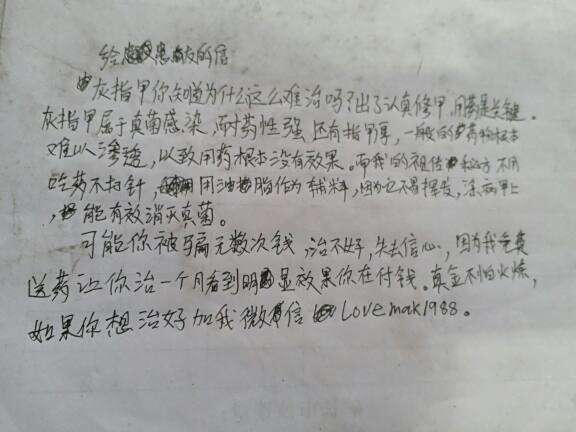 给患友的信
灰指甲你知道为什么这么难治吗?出了认真修甲,用药是关键。
灰指甲属于真菌感染,而耐药性强,还有指甲厚,一般的药物根本
难以渗透,以致用药根本没有效果。而我的祖传秘方不用
吃药不打针,用油脂作为辅料,因为它不易挥发,涂病甲上
,能有效消灭真菌。
可能你被骗无数次钱,治不好,失去信心,因为我免费
送药让你治一个月看到明显效果你在付钱。真金不怕火炼,
如果你想治好加我微信Lovemak1988。